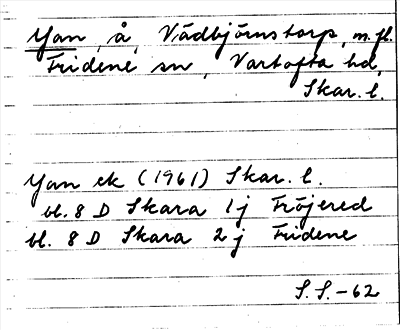 Yan, å, Vädbjörnstorp, m.fl.
Fridene sn, Vartofta hd,
Skar. l.
Yan ek (1961) Skar. l.
bl. 8 D Skara 1j Fröjered
bl. 8 D Skara 2j Fridene
S.S.-62